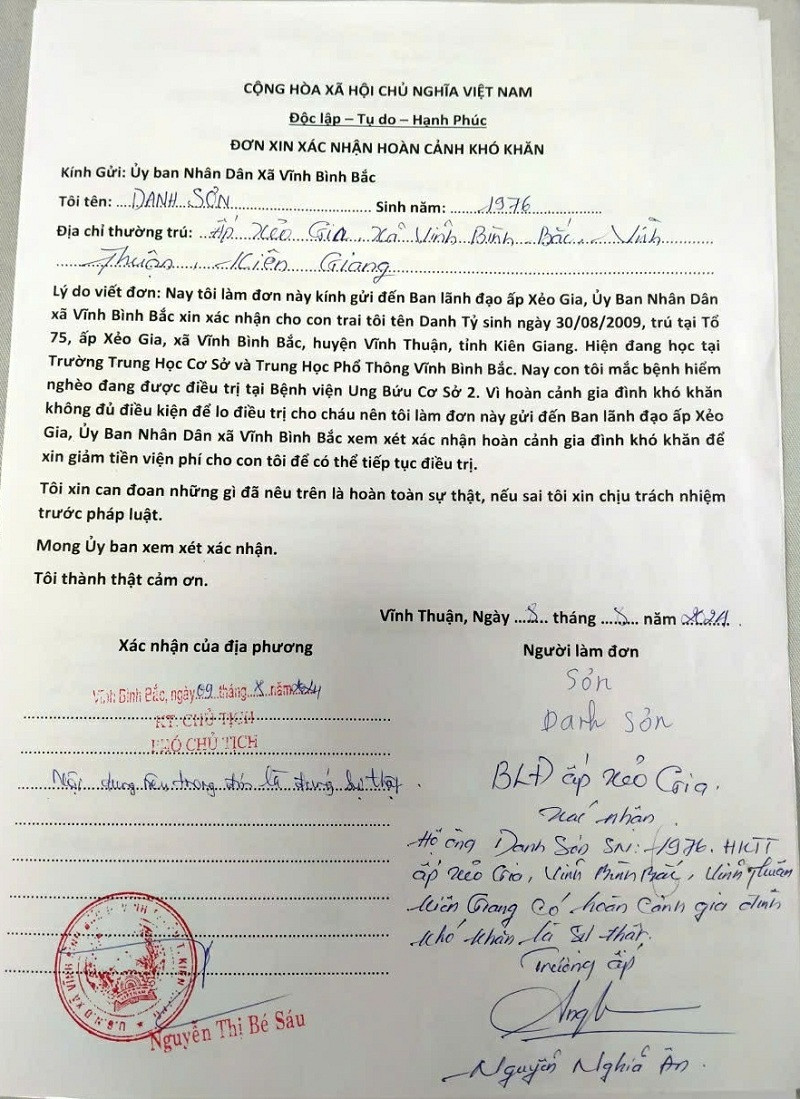 CỘNG HÒA XÃ HỘI CHỦ NGHĨA VIỆT NAM
Độc lập – Tự do – Hạnh Phúc
ĐƠN XIN XÁC NHẬN HOÀN CẢNH KHÓ KHĂN
Kính Gửi: Ủy ban Nhân Dân Xã Vĩnh Bình Bắc
Tôi tên: DANH SƠN Sinh năm: 1976
Địa chỉ thường trú: Ấp Xẻo Gia, Xã Vĩnh Bình Bắc, Vĩnh
Thuận, Kiên Giang
Lý do viết đơn: Nay tôi làm đơn này kính gửi đến Ban lãnh đạo ấp Xẻo Gia, Ủy Ban Nhân Dân
xã Vĩnh Bình Bắc xin xác nhận cho con trai tôi tên Danh Tỷ sinh ngày 30/08/2009, trú tại Tổ
75, ấp Xẻo Gia, xã Vĩnh Bình Bắc, huyện Vĩnh Thuận, tỉnh Kiên Giang. Hiện đang học tại
Trường Trung Học Cơ Sở và Trung Học Phổ Thông Vĩnh Bình Bắc. Nay con tôi mắc bệnh hiểm
nghèo đang được điều trị tại Bệnh viện Ung Bứu Cơ Sở 2. Vì hoàn cảnh gia đình khó khăn
không đủ điều kiện để lo điều trị cho cháu nên tôi làm đơn này gửi đến Ban lãnh đạo ấp Xẻo
Gia, Ủy Ban Nhân Dân xã Vĩnh Bình Bắc xem xét xác nhận hoàn cảnh gia đình khó khăn để
xin giảm tiền viện phí cho con tôi để có thể tiếp tục điều trị.
Tôi xin can đoan những gì đã nêu trên là hoàn toàn sự thật, nếu sai tôi xin chịu trách nhiệm
trước pháp luật.
Mong Ủy ban xem xét xác nhận.
Tôi thành thật cảm ơn.
Vĩnh Thuận, Ngày 8 tháng 8 năm 2024
Xác nhận của địa phương
Người làm đơn
Vĩnh Bình Bắc, ngày 09 tháng 8 năm 2024
KT. CHỦ TỊCH
PHÓ CHỦ TỊCH
Nội dung nêu trong đơn là đúng sự thật.
Nguyễn Thị Bé Sáu
Sơn
Danh Sơn
BLĐ ấp Xẻo Gia.
Xác nhận
Hộ ông Danh Sơn SN: 1976. HKTT
ấp Xẻo Gia, Vĩnh Bình Bắc, Vĩnh Thuận
Kiên Giang Có hoàn cảnh gia đình
khó khăn là sự thật.
Trưởng ấp
Nguyễn Nghĩa Ân.